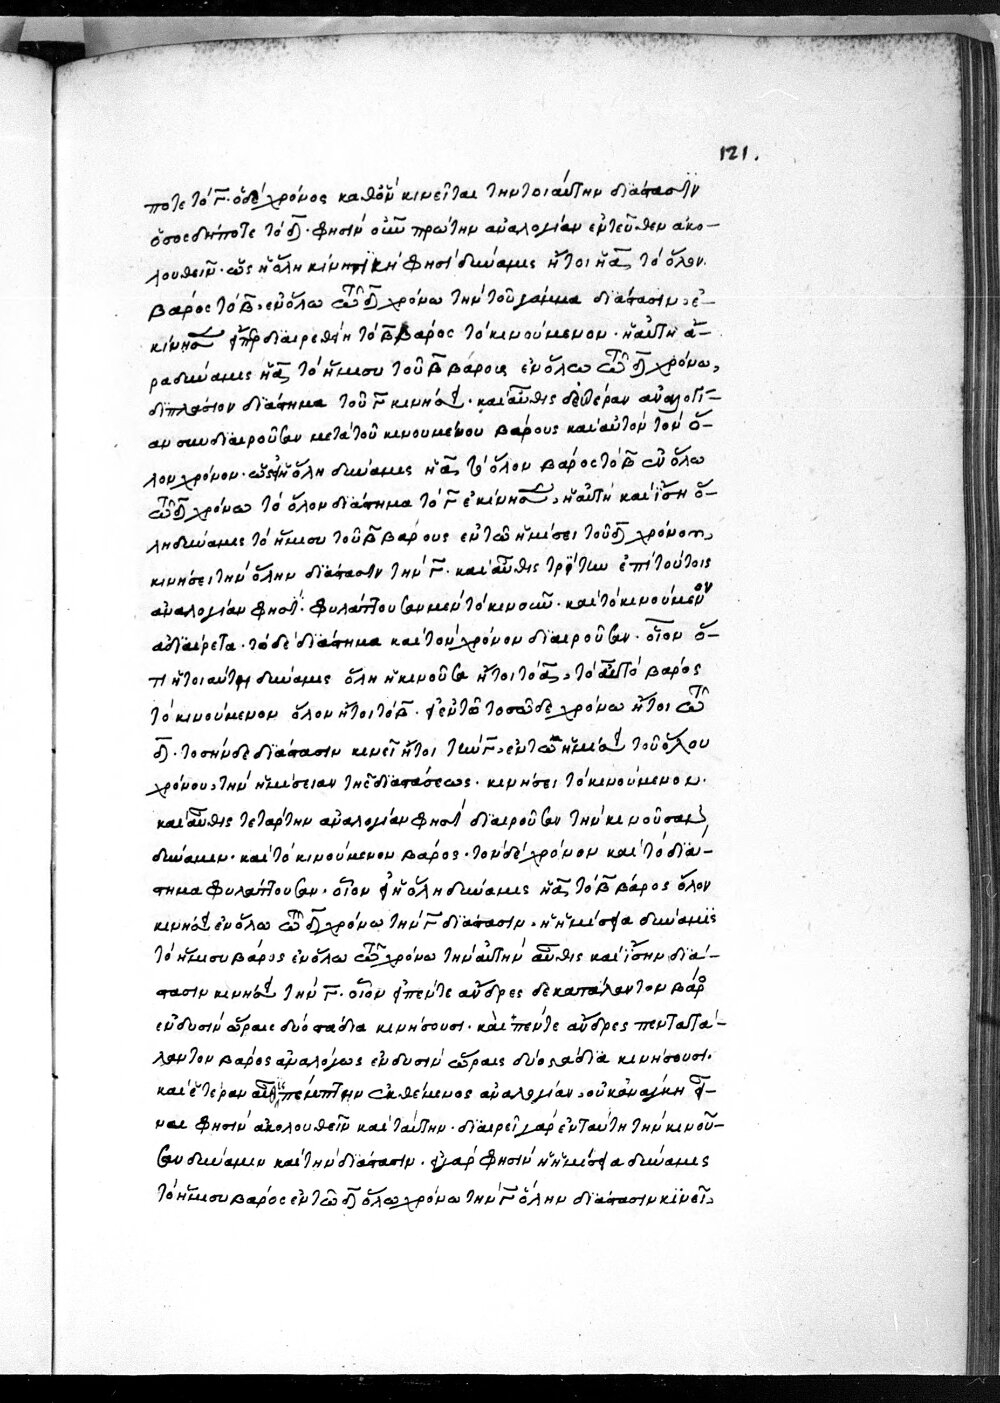 121.
ποτε τὸ Γ. ὁ δὲ χρόνος καθ' ὃν κινεῖται τὴν τοιαύτην διάστασιν
ὅσος δήποτε τὸ Δ. φησὶν οὖν πρώτην ἀναλογίαν ἐντεῦθεν ἀκο-
λουθεῖν. ὡς ἡ ὅλη κινητικὴ φησὶ δύναμις ἤτοι ἡ Α, τὸ ὅλον
βάρος τὸ Β, ἐν ὅλω τῶ Δ χρόνω τὴν τοῦ γάμμα διάστασιν, ἐ-
κίνησεν διαιρεθῆ τὸ Β βάρος τὸ κινούμενον. ἡ αὐτὴ ἄ-
ρα δύναμις ἡ Α τὸ ἥμισυ τοῦ Β βάρους ἐν ὅλω τῶ Δ χρόνω,
διπλάσιον διάστημα τοῦ Γ κινήσει. καὶ αὖθις δευτέραν ἀναλογί-
αν συνδιαιροῦσαν μετὰ τοῦ κινουμένου βάρους καὶ αὐτὸν τὸν ὅ-
λον χρόνον. ὡς ἡ ὅλη δύναμις ἡ Α τὸ ὅλον βάρος τὸ Β ἐν ὅλω
τῶ Δ χρόνω τὸ ὅλον διάστημα τὸ Γ ἐκίνησεν, ἡ αὐτὴ καὶ ἴση ὅ-
λη δύναμις τὸ ἥμισυ τοῦ Β βάρους ἐν τῶ ἡμίσει τοῦ Δ χρόνου,
κινήσει τὴν ὅλην διάστασιν τὴν Γ. καὶ αὖθις τρίτην ἐπὶ τούτοις
ἀναλογίαν φησὶ. φυλάττουσαν μὲν τὸ κινοῦν. καὶ τὸ κινούμενον
ἀδιαίρετα. τὸ δὲ διάστημα καὶ τὸν χρόνον διαιροῦσαν. οἷον ὅ-
τι ἡ τοιαύτη δύναμις ὅλη ἡ κινοῦσα ἤτοι τὸ Α, τὸ αὐτὸ βάρος
τὸ κινούμενον ὅλον ἤτοι τὸ Β. ἐν τῶ τοσῶδε χρόνω ἤτοι τῶ
Δ. τοσήνδε διάστασιν κινεῖ ἤτοι τὴν Γ, ἐν τῶ ἡμίσει τοῦ ὅλου
χρόνου, τὴν ἡμίσειαν τῆς διαστάσεως. κινήσει τὸ κινούμενον.
καὶ αὖθις τετάρτην ἀναλογίαν φησὶ διαιροῦσαν τὴν κινοῦσαν
δύναμιν. καὶ τὸ κινούμενον βάρος. τὸν δὲ χρόνον καὶ τὸ διά-
στημα φυλάττουσαν. οἷον ἡ ὅλη δύναμις ἡ Α τὸ Β βάρος ὅλον
κινήσει ἐν ὅλω τῶ Δ χρόνω τὴν Γ διάστασιν. ἡ ἡμίσεια δύναμις
τὸ ἥμισυ βάρος ἐν ὅλω τῶ Δ χρόνω τὴν αὐτὴν αὖθις καὶ ἴσην διά-
στασιν κινήσει τὴν Γ. οἷον εἰ πέντε ἄνδρες δεκατάλαντον βάρος
ἐν δυσὶν ὥραις δύο στάδια κινήσουσι. καὶ πέντε ἄνδρες πενταττά-
λαντον βάρος ἀναλόγως ἐν δυσὶν ὥραις δύο στάδια κινήσουσι.
καὶ ἑτέραν πέμπτην ἐκθέμενος ἀναλογίαν, οὐκ ἀνάγκη εἶ-
ναι φησὶν ἀκολουθεῖν καὶ ταύτην. διαιρεῖ γὰρ ἐν ταύτῃ τὴν κινοῦ-
σαν δύναμιν καὶ τὴν διάστασιν. εἰ γάρ φησιν ἡ ἡμίσεια δύναμις
τὸ ἥμισυ βάρος ἐν τῶ Δ ὅλω χρόνω τὴν Γ ὅλην διάστασιν κινεῖ,